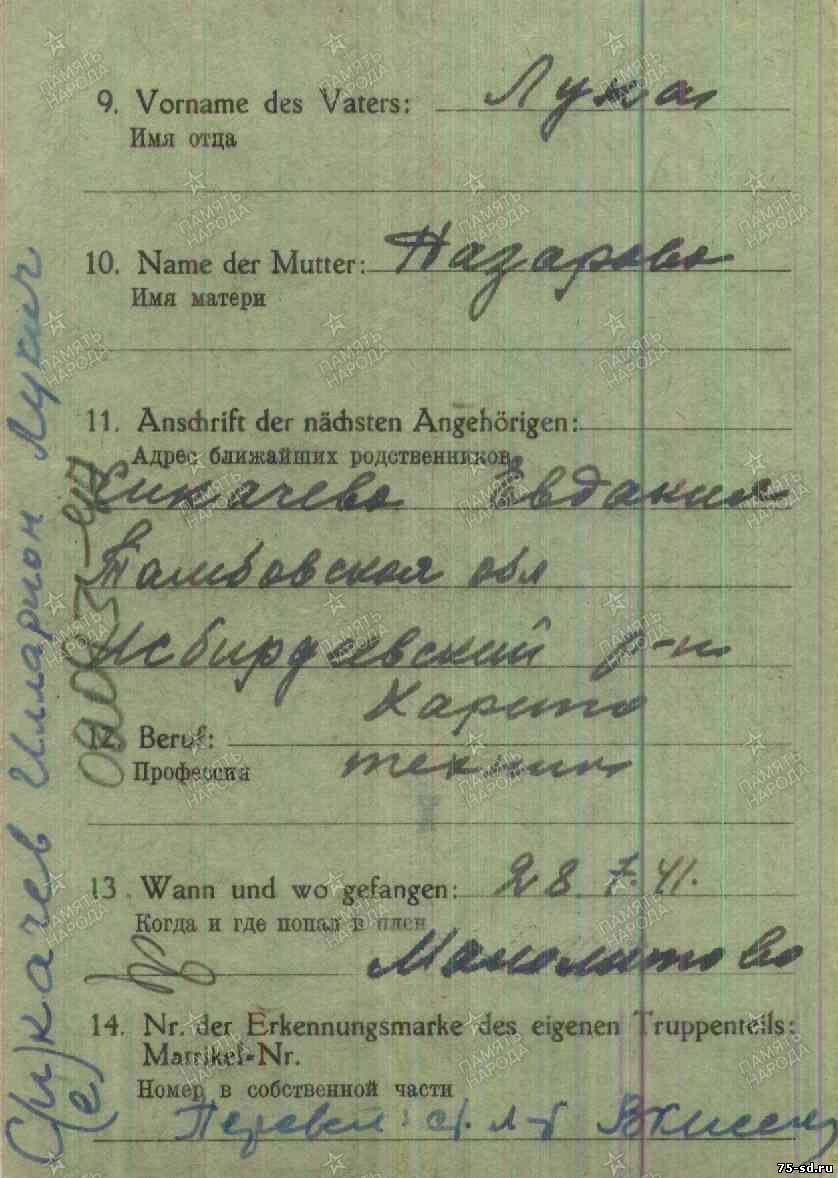 9. Vorname des Vaters: Лука
Имя отца
10. Name der Mutter: Назарова
Имя матери
11. Anschrift der nächsten Angehörigen:
Адрес ближайших родственников
Сикачева Евдакия
Тамбовская обл
Исбирдеевский р-н
Карипо
12. Beruf:
Профессия техник
13. Wann und wo gefangen: 28.7.41.
Когда и где попал в плен
Манолитово
14. Nr. der Erkennungsmarke des eigenen Truppenteils:
Matrikel-Nr.
Номер в собственной части
Перевел: ст. л-т
С(и)качев Илларион Лукич
(е)
ПАМЯТЬ НАРОДА
75-sd.ru